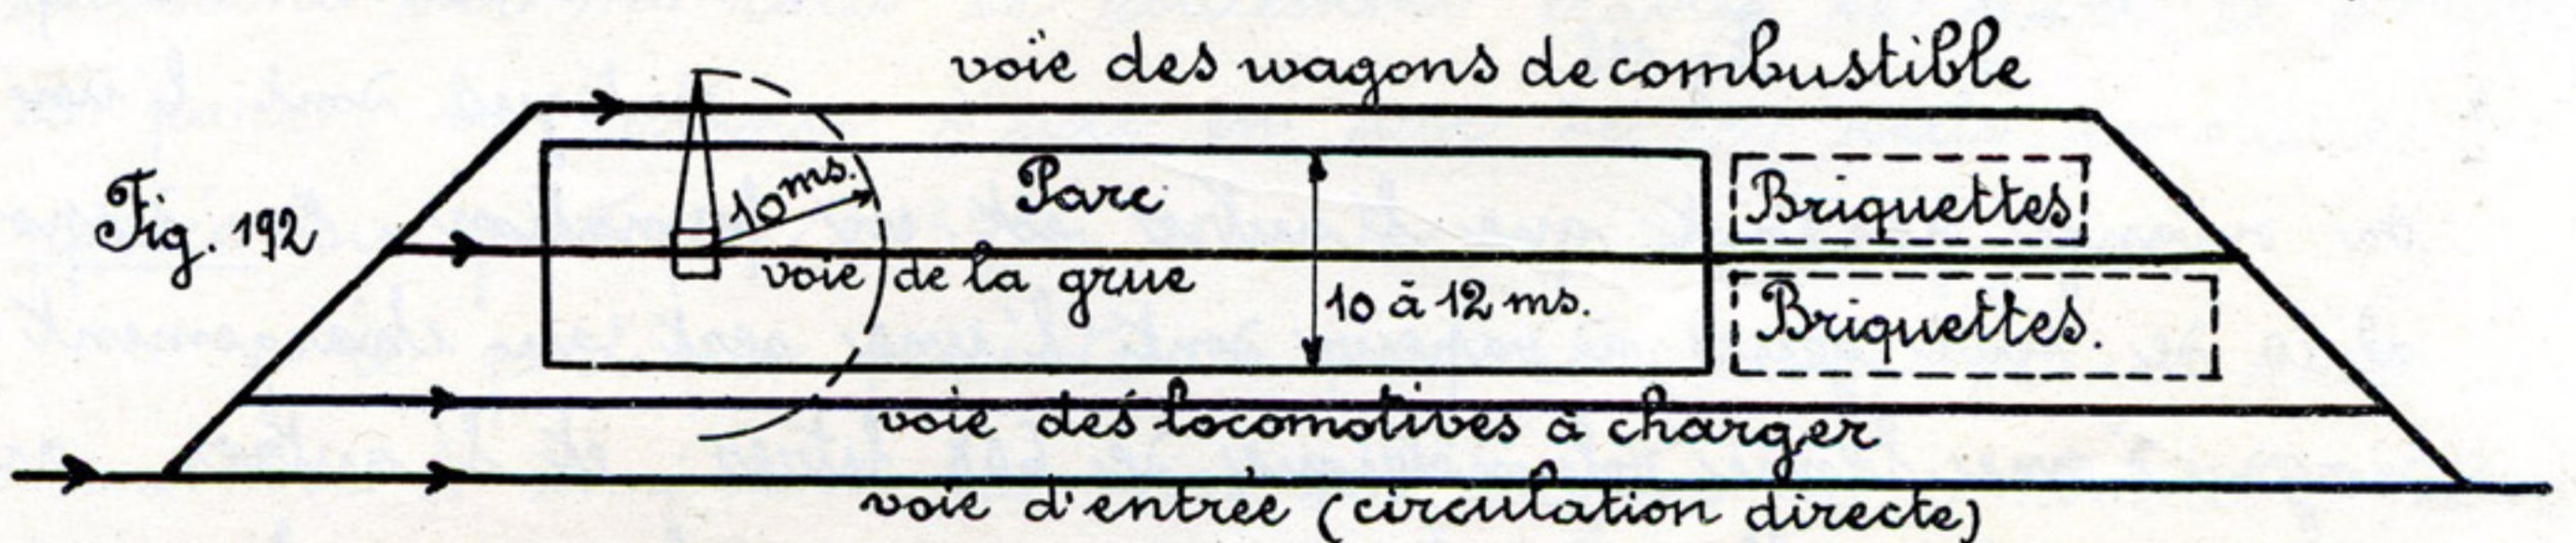 voie des wagons de combustible
Fig. 192
10 ms.
Parc
Briquettes
voie de la grue
10 à 12 ms.
Briquettes.
voie des locomotives à charger
voie d'entrée (circulation directe)